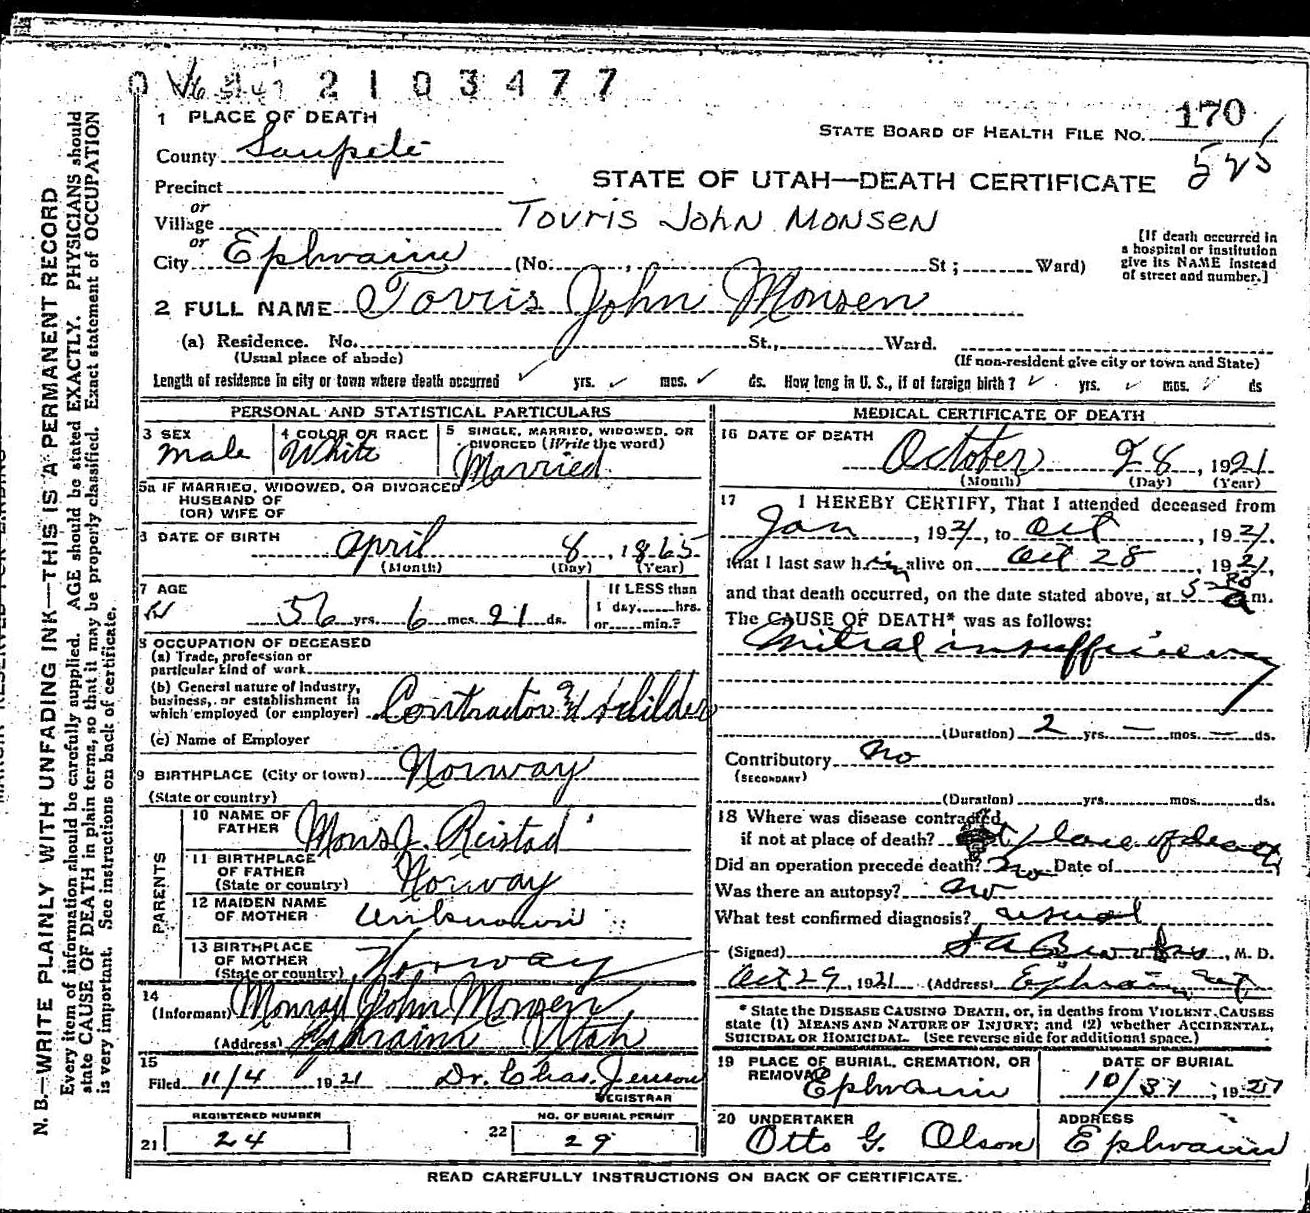 2103477
1 PLACE OF DEATH
STATE BOARD OF HEALTH FILE NO. 170
525
County Sanpete
STATE OF UTAH—DEATH CERTIFICATE
Precinct
or
Village
Tovris John Monsen
or
City Ephraim (No. , St ; Ward)
[If death occurred in a hospital or institution give its NAME instead of street and number.]
2 FULL NAME Tovris John Monsen
(a) Residence. No. St., Ward.
(Usual place of abode) (If non-resident give city or town and State)
Length of residence in city or town where death occurred yrs. mos. ds. How long in U. S., if of foreign birth? yrs. mos. ds
PERSONAL AND STATISTICAL PARTICULARS
3 SEX
Male
4 COLOR OR RACE
White
5 SINGLE, MARRIED, WIDOWED, OR DIVORCED (Write the word)
Married
5a IF MARRIED, WIDOWED, OR DIVORCED
HUSBAND OF
(OR) WIFE OF
DATE OF BIRTH
April 8, 1865
(Month) (Day) (Year)
7 AGE
56 yrs. 6 mos. 21 ds.
If LESS than
1 day, hrs.
or min.?
8 OCCUPATION OF DECEASED
(a) Trade, profession or
particular kind of work
(b) General nature of industry,
business, or establishment in
which employed (or employer) Contractor & Builder
(c) Name of Employer
9 BIRTHPLACE (City or town) Norway
(State or country)
PARENTS
10 NAME OF FATHER Mons J. Reistad
11 BIRTHPLACE OF FATHER
(State or country) Norway
12 MAIDEN NAME OF MOTHER Unknown
13 BIRTHPLACE OF MOTHER
(State or country) Norway
14
(Informant) Monrad John Monsen
(Address) Ephraim Utah
15
Filed 11/4 1921 Dr. Chas. Jenson
REGISTRAR
REGISTERED NUMBER
21 24
NO. OF BURIAL PERMIT
22 29
MEDICAL CERTIFICATE OF DEATH
16 DATE OF DEATH
October 28, 1921
(Month) (Day) (Year)
17 I HEREBY CERTIFY, That I attended deceased from
Jan, 1921, to Oct, 1921.
that I last saw him alive on Oct 28 1921,
and that death occurred, on the date stated above, at 5 30 a m.
The CAUSE OF DEATH* was as follows:
Mitral insufficiency
(Duration) 2 yrs. — mos. — ds.
Contributory No
(SECONDARY)
(Duration) yrs. mos. ds.
18 Where was disease contracted
if not at place of death? at place of death
Did an operation precede death? No Date of
Was there an autopsy? No
What test confirmed diagnosis? usual
(Signed) , M. D.
Oct 29, 1921 (Address) Ephraim, Ut
* State the DISEASE CAUSING DEATH, or, in deaths from VIOLENT CAUSES
state (1) MEANS AND NATURE OF INJURY; and (2) whether ACCIDENTAL,
SUICIDAL OR HOMICIDAL. (See reverse side for additional space.)
19 PLACE OF BURIAL, CREMATION, OR REMOVAL
Ephraim
DATE OF BURIAL
10/31, 1921
20 UNDERTAKER
Otto G. Olson
ADDRESS
Ephraim
READ CAREFULLY INSTRUCTIONS ON BACK OF CERTIFICATE.
N. B.—WRITE PLAINLY WITH UNFADING INK—THIS IS A PERMANENT RECORD
Every item of information should be carefully supplied. AGE should be stated EXACTLY. PHYSICIANS should
state CAUSE OF DEATH in plain terms, so that it may be properly classified. Exact statement of OCCUPATION
is very important. See instructions on back of certificate.